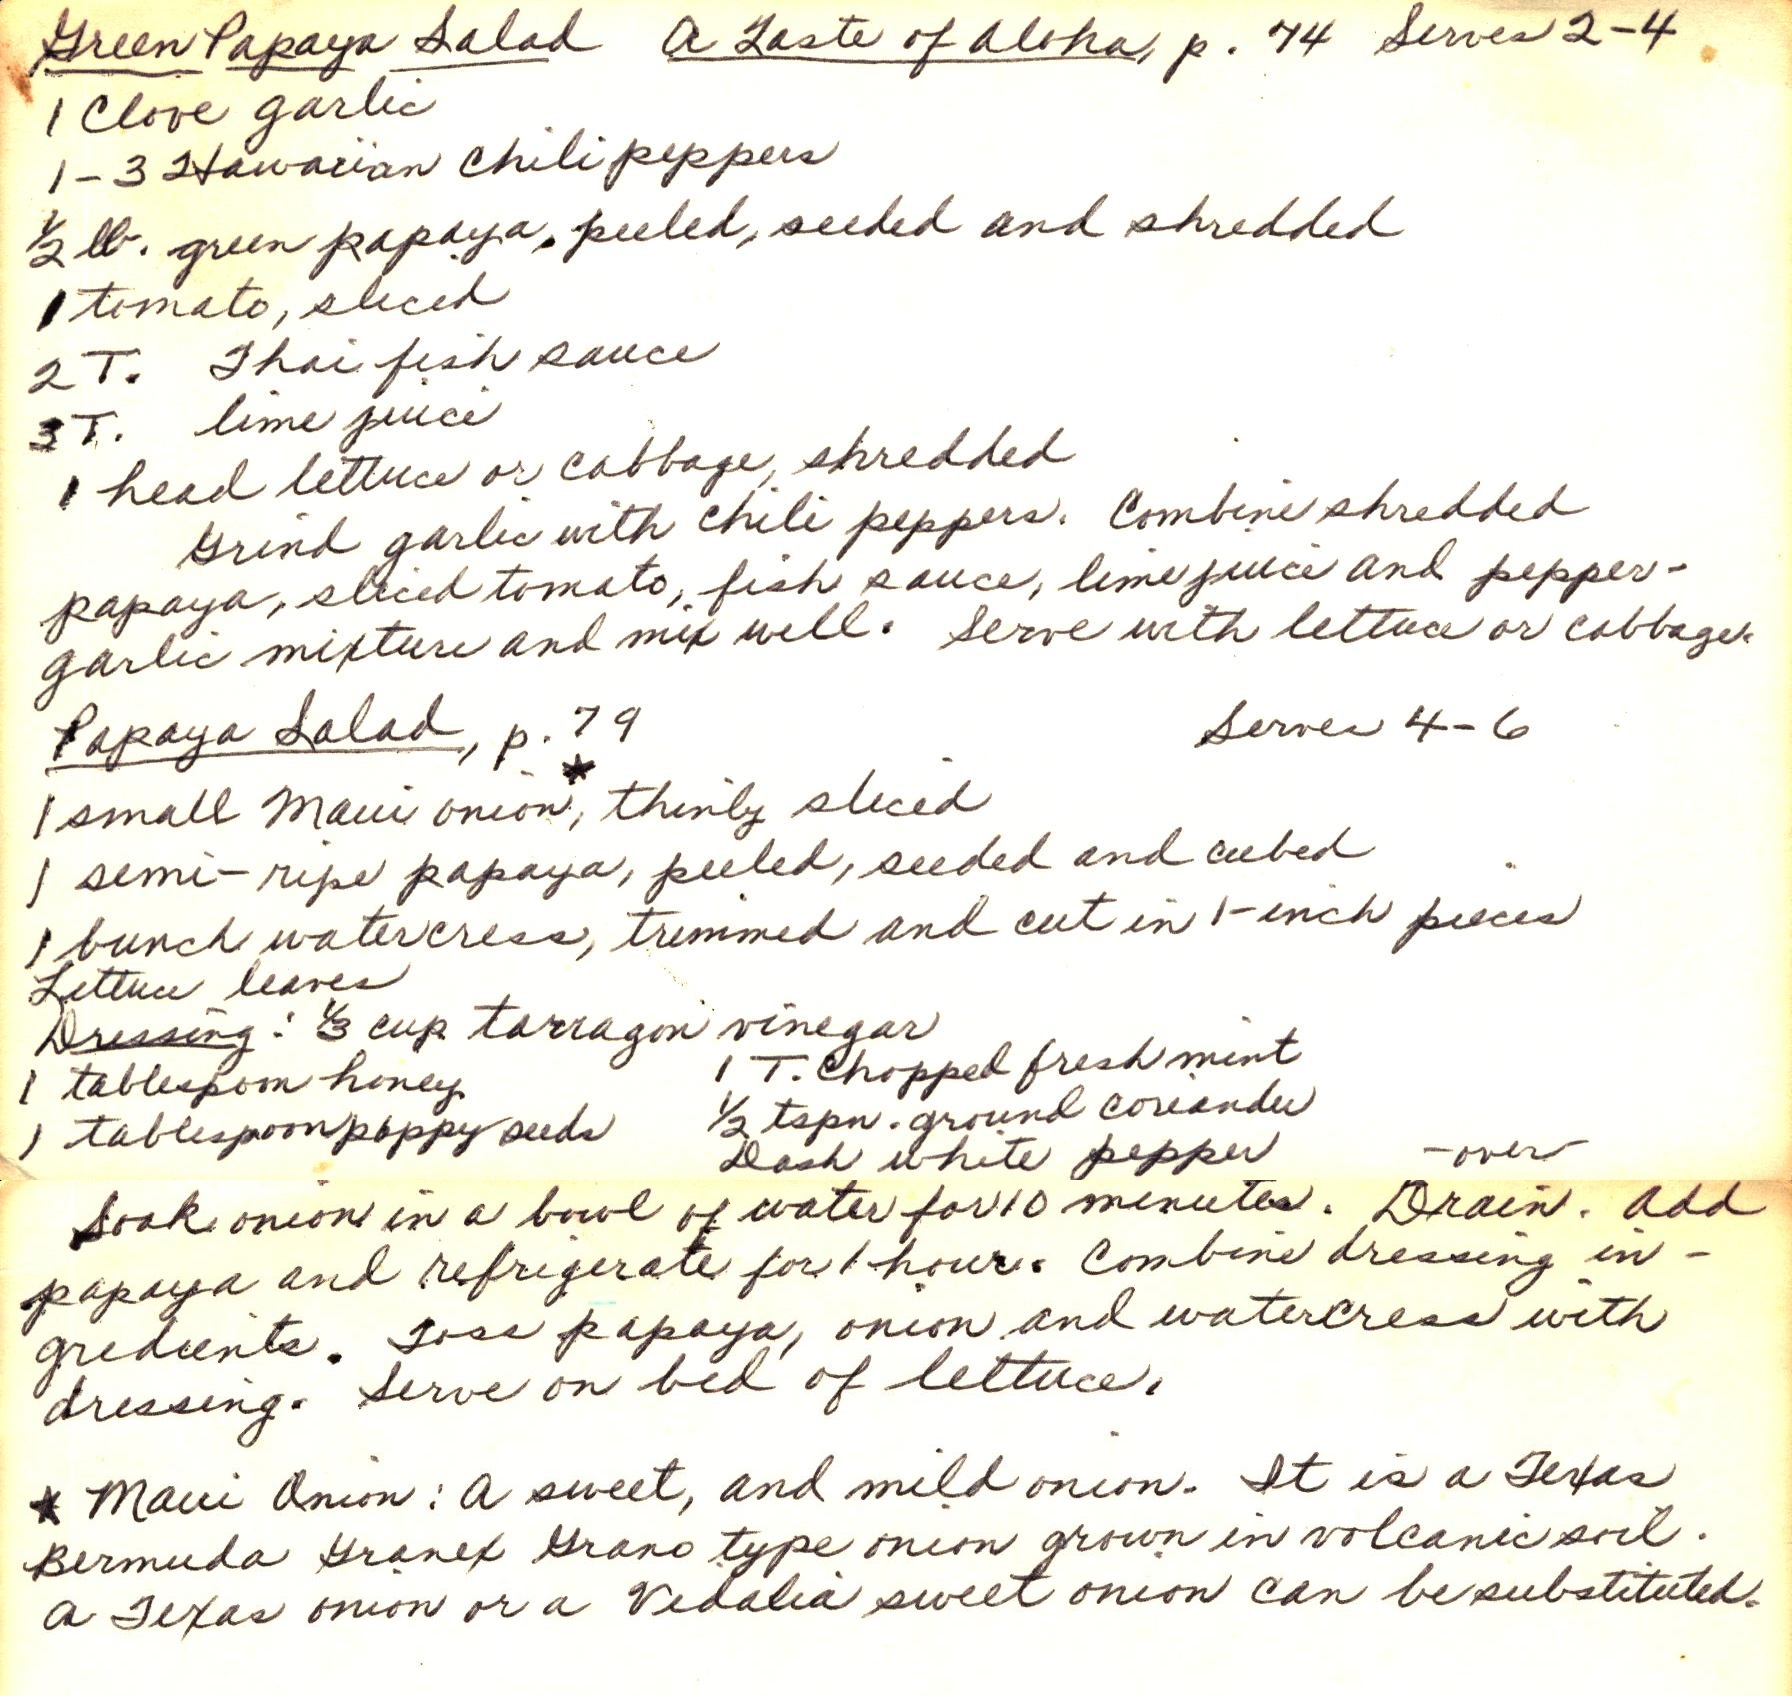 Green Papaya Salad A Taste of Aloha, p. 74 Serves 2-4
1 Clove garlic
1-3 Hawaiian Chili peppers
1/2 lb. green papaya, peeled, seeded and shredded
1 tomato, sliced
2 T. Thai fish sauce
3 T. lime juice
1 head lettuce or cabbage, shredded
Grind garlic with chili peppers. Combine shredded
papaya, sliced tomato, fish sauce, lime juice and pepper-
garlic mixture and mix well. Serve with lettuce or cabbage.
Papaya Salad, p. 79 Serves 4-6
1 small Maui onion*, thinly sliced
1 semi-ripe papaya, peeled, seeded and cubed
1 bunch watercress, trimmed and cut in 1-inch pieces
Lettuce leaves
Dressing: 1/3 cup tarragon vinegar
1 tablespoon honey 1 T. chopped fresh mint
1 tablespoon poppy seeds 1/2 tspn. ground coriander
Dash white pepper -over-
Soak onion in a bowl of water for 10 minutes. Drain. Add
papaya and refrigerate for 1 hour. Combine dressing in-
gredients. Toss papaya, onion and watercress with
dressing. Serve on bed of lettuce.
* Maui Onion: A sweet, and mild onion. It is a Texas
Bermuda Granex Grano type onion grown in volcanic soil.
A Texas onion or a Vidalia sweet onion can be substituted.